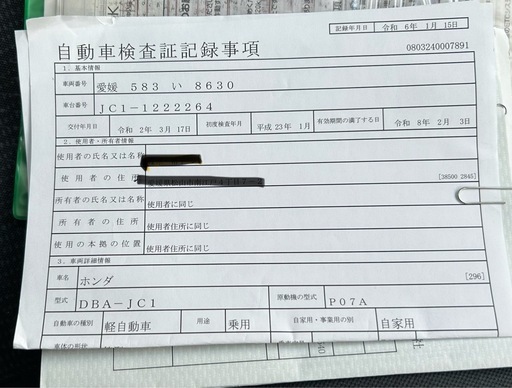 記録年月日 令和 6年 1月 15日
自動車検査証記録事項
0803240007891
1. 基本情報
車両番号 愛媛 583 い 8630
車台番号 JC1-1222264
交付年月日 令和 2年 3月 17日 初度検査年月 平成 23年 1月 有効期間の満了する日 令和 8年 2月 3日
2. 使用者・所有者情報
使用者の氏名又は名称
使用者の住所 [38500 2845]
所有者の氏名又は名称 使用者に同じ
所有者の住所 使用者住所に同じ
使用の本拠の位置 使用者住所に同じ
3. 車両詳細情報
車名 ホンダ [296]
型式 DBA-JC1 原動機の型式 P07A
自動車の種別 軽自動車 用途 乗用 自家用・事業用の別 自家用
車体の形状